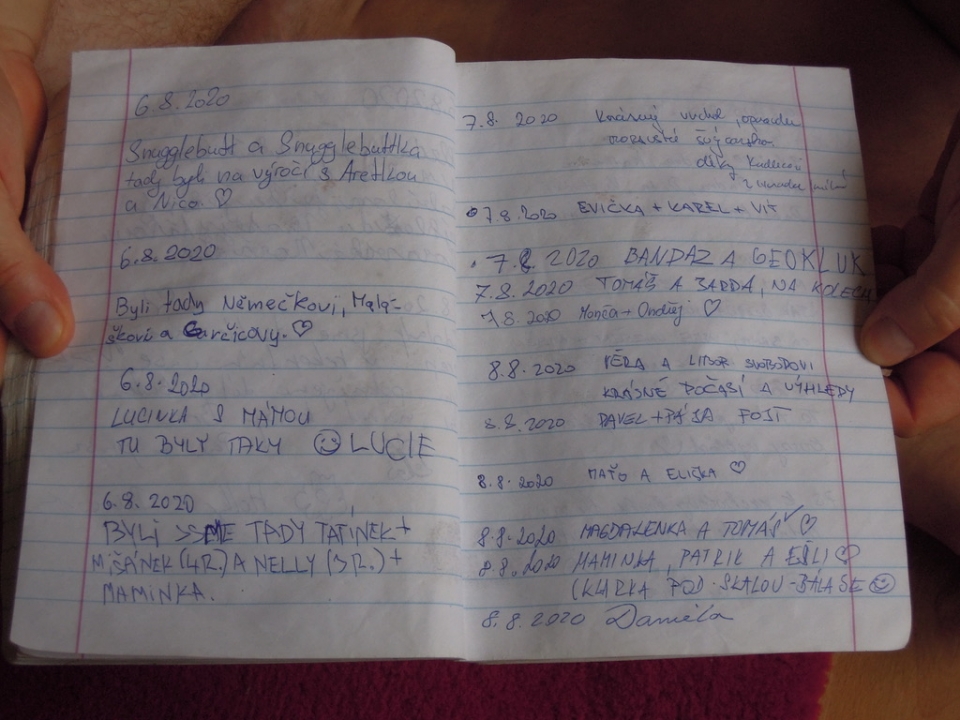 6.8.2020
Snugglebutt a Snugglebuttka
tady byli na výročí s Aretkou
a Nico ♡
6.8.2020
Byli tady Němečkovi, Malá-
škovi a Gurčicovy. ♡
6.8.2020
LUCINKA S MÁMOU
TU BYLY TAKY ☺ LUCIE
6.8.2020
BYLI SME TADY TATÍNEK +
MIŠÁNEK (4R.) A NELLY (3R.) +
MAMINKA.
7.8. 2020 Krásný
díky
7.8.2020 EVIČKA + KAREL + VÍT
7.8.2020 BANDAZ A GEOKLUK
7.8.2020 TOMÁŠ A JARDA, NA KOLECH
7.8.2020 Monča + Ondřej ♡
8.8.2020 VĚRA A LIBOR SVOBODOVI
KRÁSNÉ POČASÍ A VÝHLEDY
8.8.2020 PAVEL + PÁJA FOJT
8.8.2020 MAŤO A ELIŠKA ♡
8.8.2020 MAGDALENKA A TOMÁŠ ♡
8.8.2020 MAMINKA, PATRIK A ELLI ♡
(KLÁRKA POD SKALOU - BÁLA SE ☺
8.8.2020 Daniela